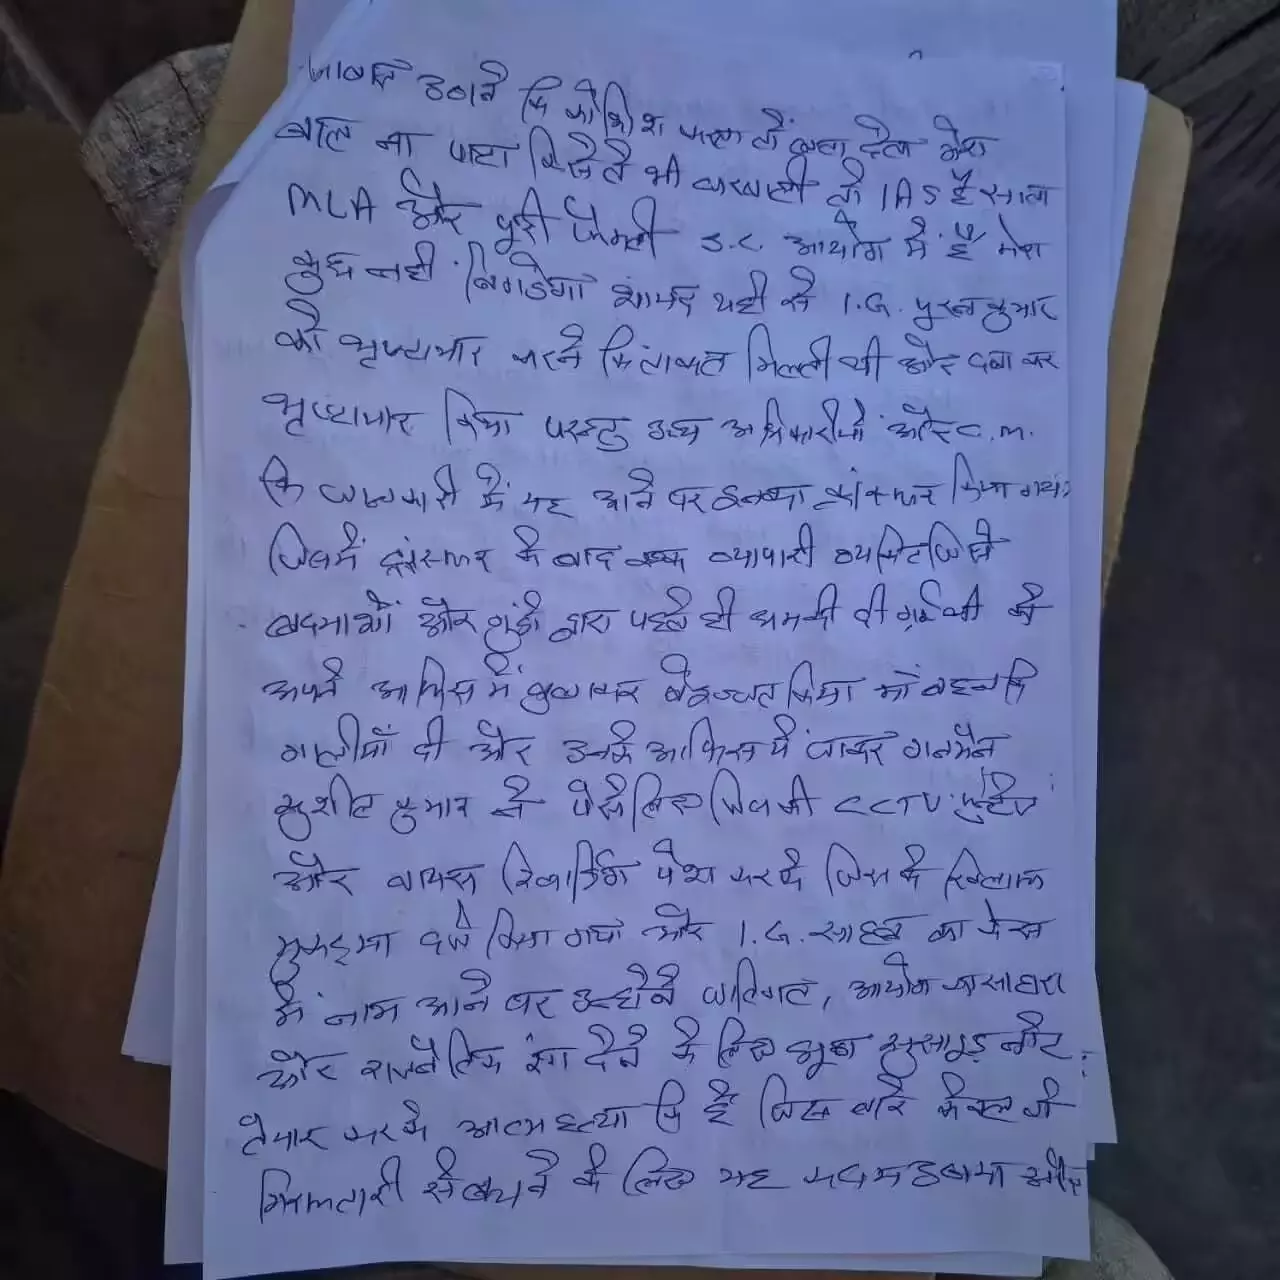 आवाज उठाने कि कोशिश करता तो बता देता मेरा
बाल ना पाटा भी घरवाली तो IAS है साला
MLA और पूरी फैमली S.C. आयोग में है मेरा
कुछ नही बिगडेगा शायद यही से I.G. पुरन कुमार
को भृष्टाचार करने कि ताकत मिलती थी और दबा कर
भृष्टाचार किया परन्तु उच्च अधिकारीयों और C.M.
कि जानकारी में यह आने पर इनका ट्रांस्फर किया गया
जिसमें ट्रांस्फर के बाद एक व्यापारी व्यक्ति जिसे
बदमाशों और गुंडो द्वारा पहले ही धमकी दी गई थी को
अपने आफिस में बुलाकर बेइज्जत किया माँ बहन कि
गालीयाँ दी और उनके आफिस में जाकर गनमैन
सुशील कुमार ने पैसे लिए जिसकी CCTV फुटेज
और वायस रिकार्डिंग पेश कर के जिस के खिलाफ
मुकद्दमा दर्ज किया गया और I.G. साहब का केस
में नाम आने पर उन्होने जातिगत, आयोग का साहारा
और राजनैतिक रंग देने के लिए झूठा सुसाइड नोट
तैयार कर के आत्महत्या कि है जिस बारे केवल जी
गिरफ्तारी से बचने के लिए यह कदम उठाया और